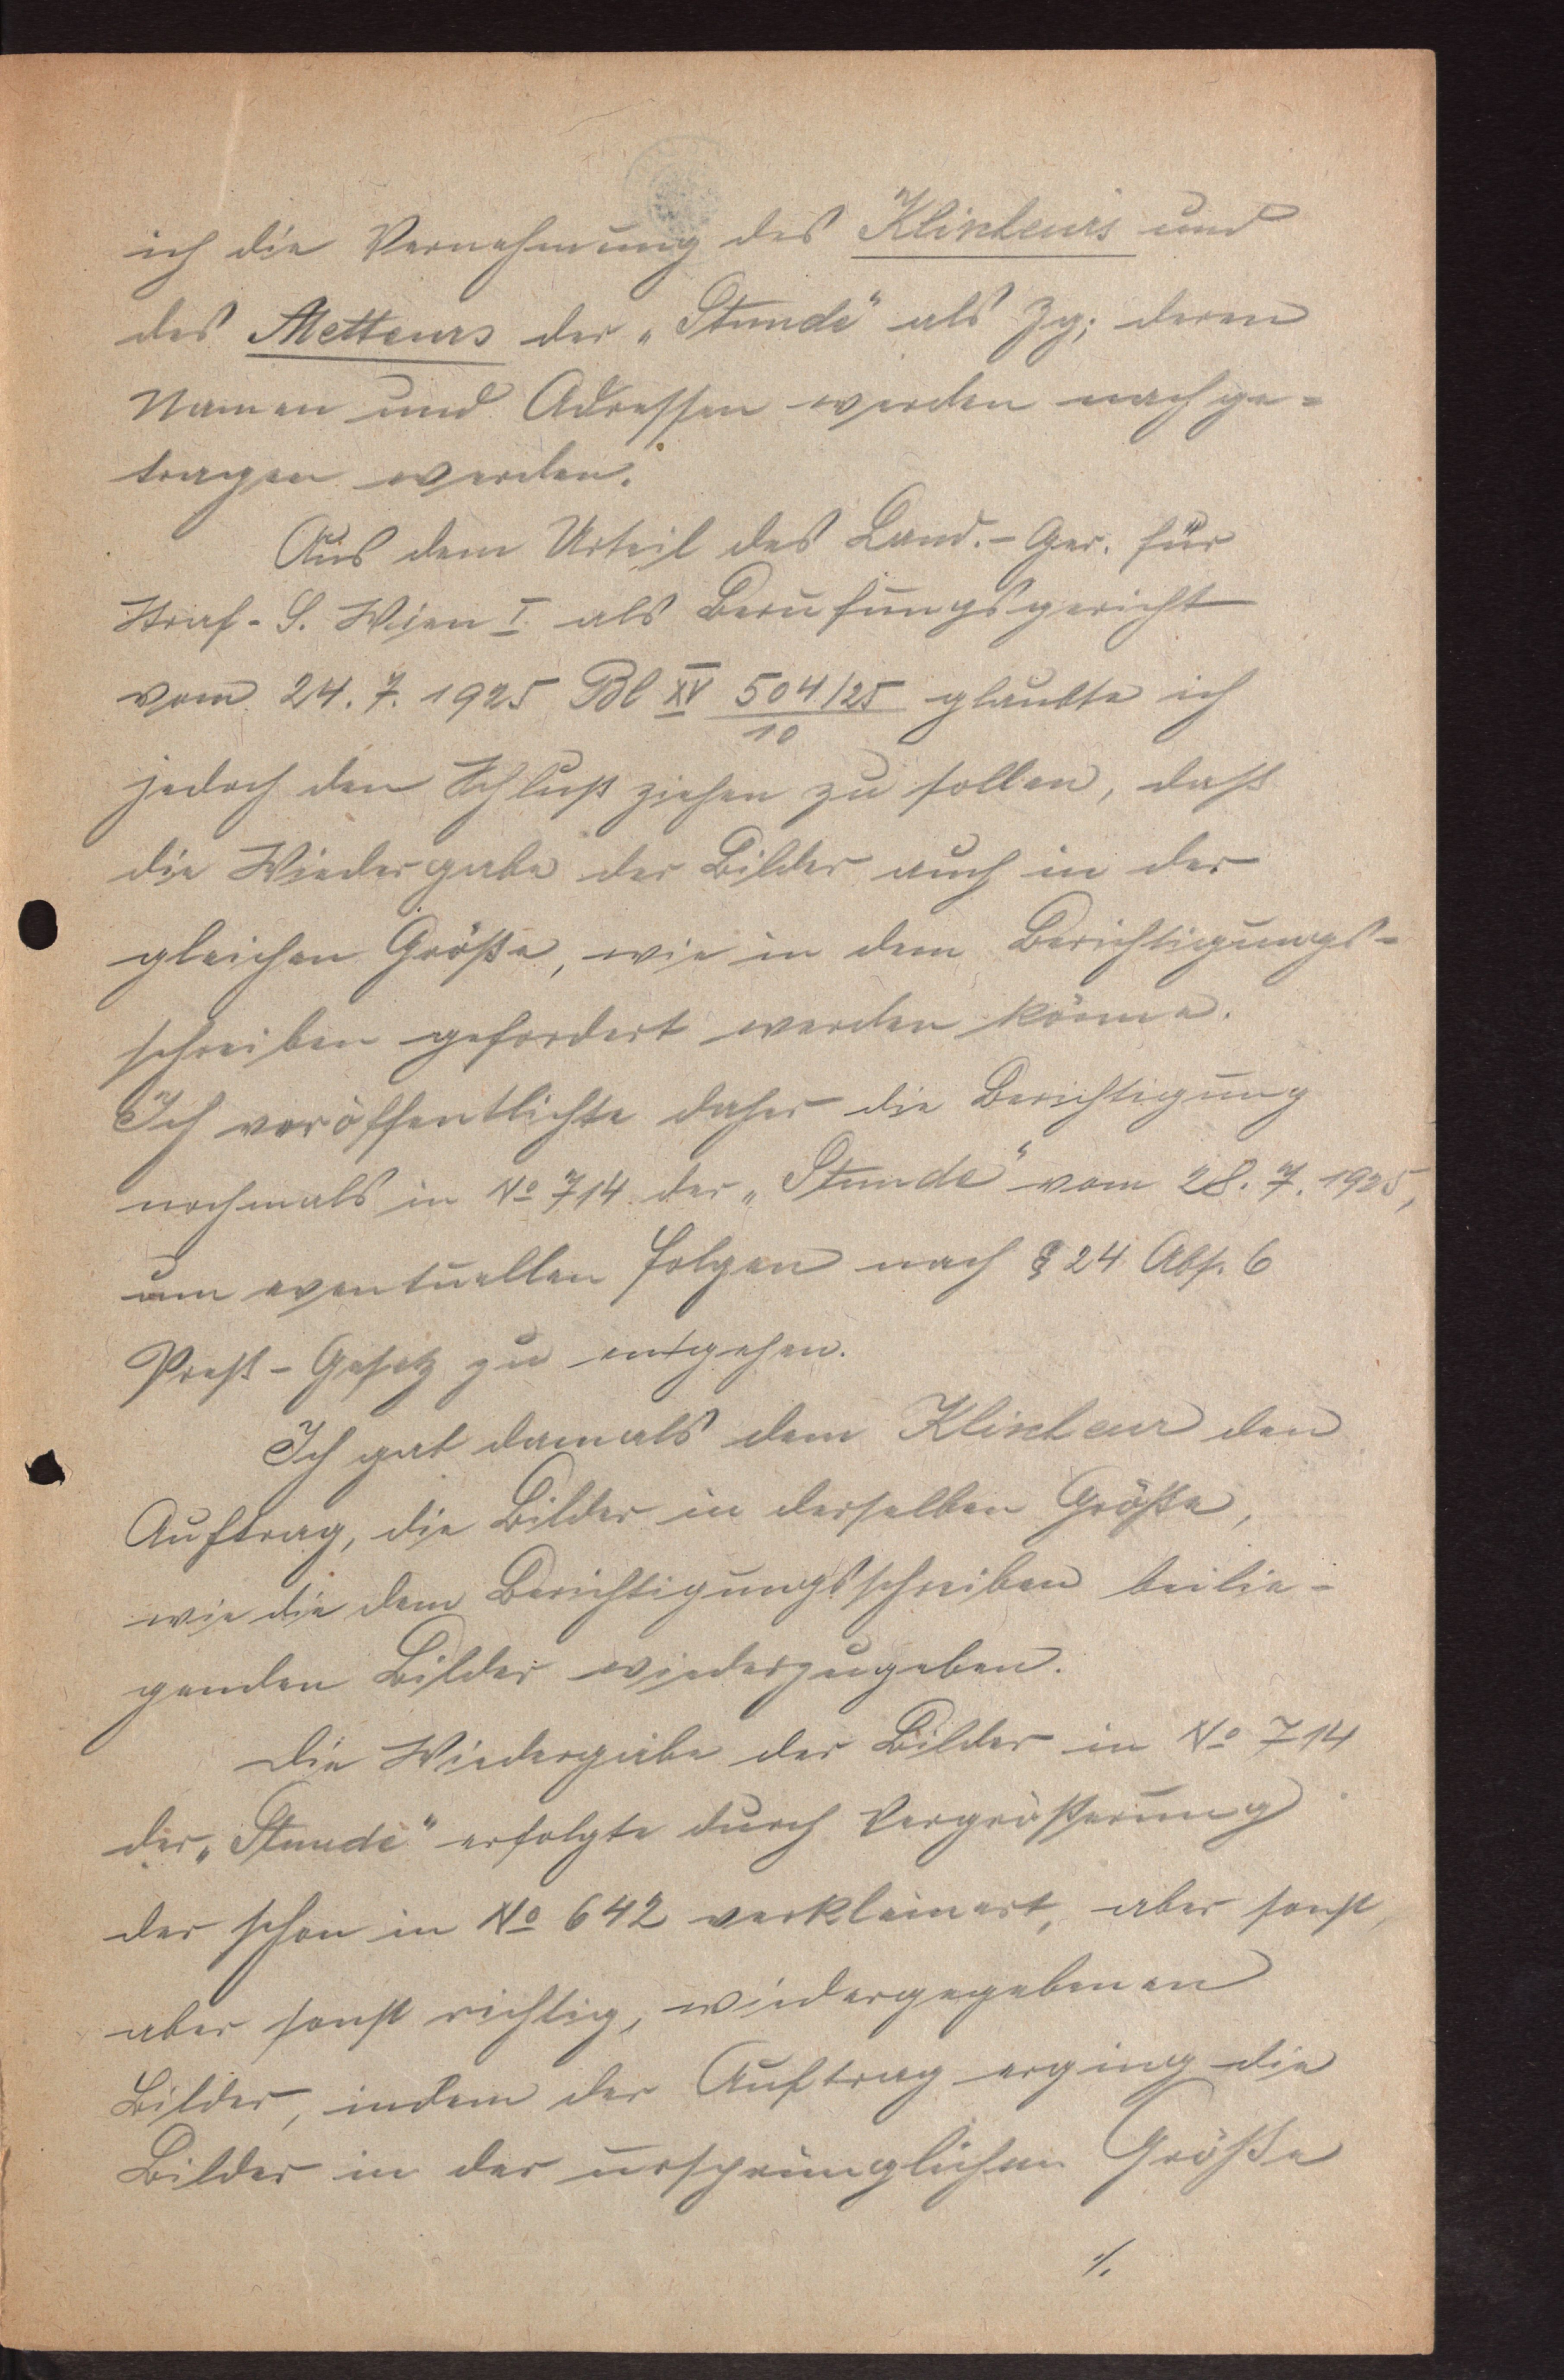 ich die Vernehmung des Klischeurs und
des Metteurs der „Stunde“ als Zg; deren
Namen und Adressen werden nachge-
tragen werden.
Aus dem Urteil des Land.-Ger. für
Straf-S. Wien I. als Berufungsgericht
vom 24. 7. 1925 Bl XV 504/25 glaubte ich
10
jedoch den Schluß ziehen zu sollen, daß
die Wiedergabe der Bilder auch in der
gleichen Größe, wie in dem Berichtigungs-
schreiben gefordert werden könne.
Ich veröffentlichte daher die Berichtigung
nochmals in No 714 der „Stunde“ vom 28. 7. 1925,
um eventuellen Folgen nach § 24 Abs. 6
Preß-Gesetz zu entgehen.
Ich gab damals dem Klischeur den
Auftrag, die Bilder in derselben Größe,
wie die dem Berichtigungsschreiben beilie-
genden Bilder wiederzugeben.
Die Wiedergabe der Bilder in No 714
der „Stunde“ erfolgte durch Vergrößerung
der schon in No 642 verkleinert, aber sonst,
aber sonst richtig, wiedergegebenen
Bilder, indem der Auftrag erging die
Bilder in der ursprünglichen Größe
./.